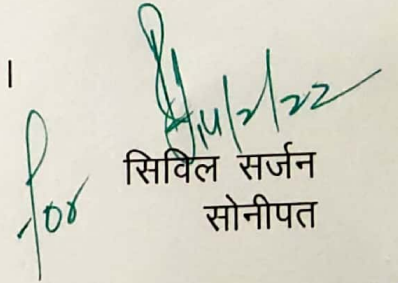 ।
14/2/22
for सिविल सर्जन
सोनीपत